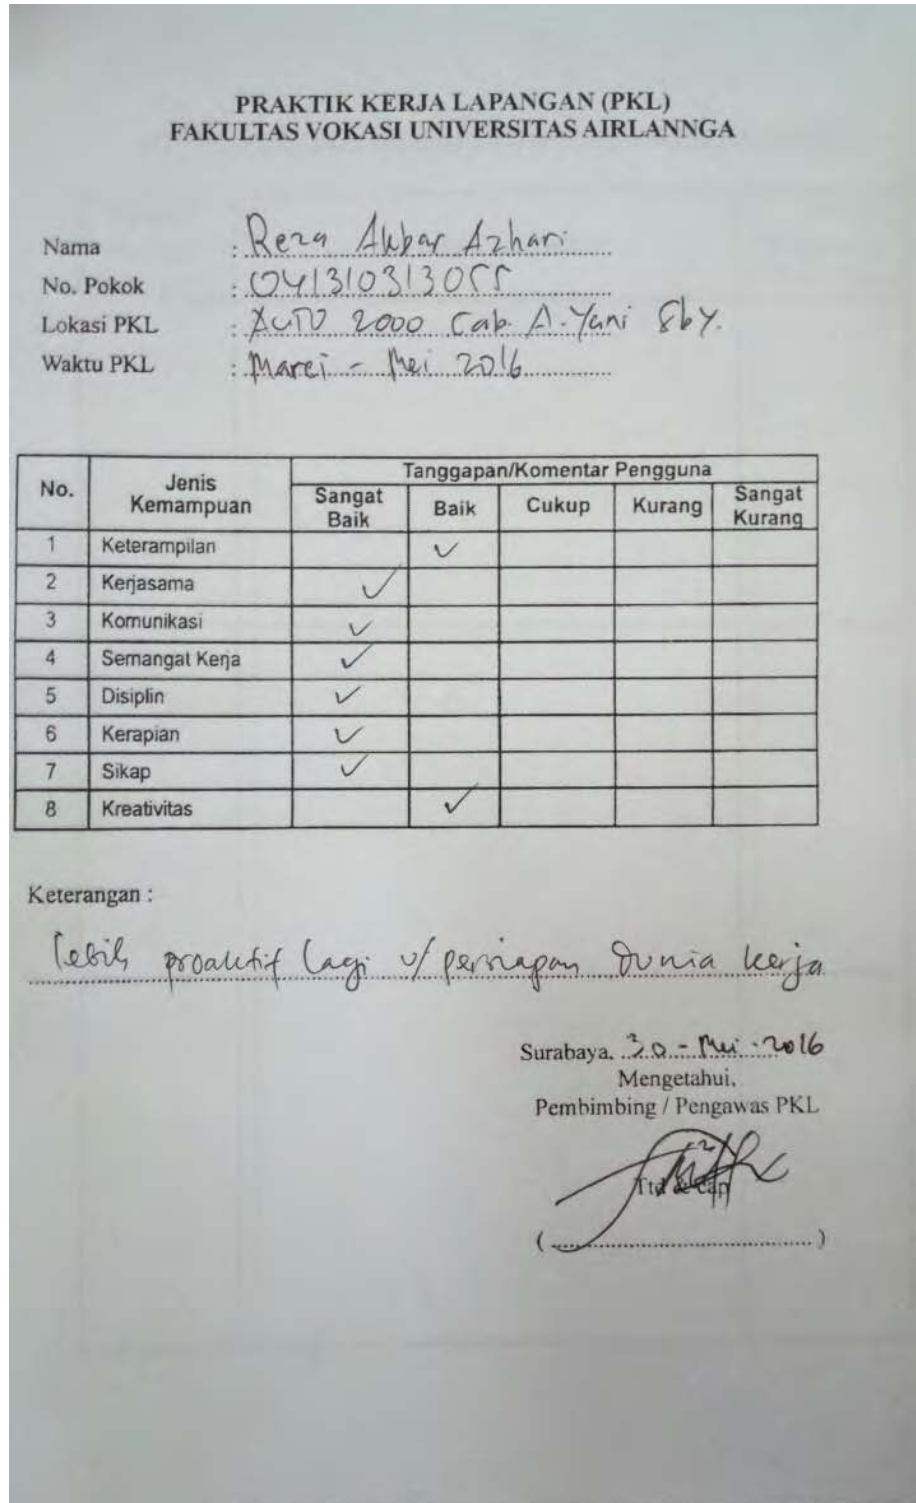 PRAKTIK KERJA LAPANGAN (PKL)
FAKULTAS VOKASI UNIVERSITAS AIRLANNGA
Nama : Reza Akbar Azhari
No. Pokok : 041310313055
Lokasi PKL : AUTO 2000 Cab. A. Yani Sby.
Waktu PKL : Maret - Mei 2016
No. Jenis Kemampuan Tanggapan/Komentar Pengguna
Sangat Baik Baik Cukup Kurang Sangat Kurang
1 Keterampilan ✓
2 Kerjasama ✓
3 Komunikasi ✓
4 Semangat Kerja ✓
5 Disiplin ✓
6 Kerapian ✓
7 Sikap ✓
8 Kreativitas ✓
Keterangan :
lebih proaktif lagi u/ persiapan dunia kerja
Surabaya, 30 - Mei - 2016
Mengetahui,
Pembimbing / Pengawas PKL
Ttd & cap
(..............................)